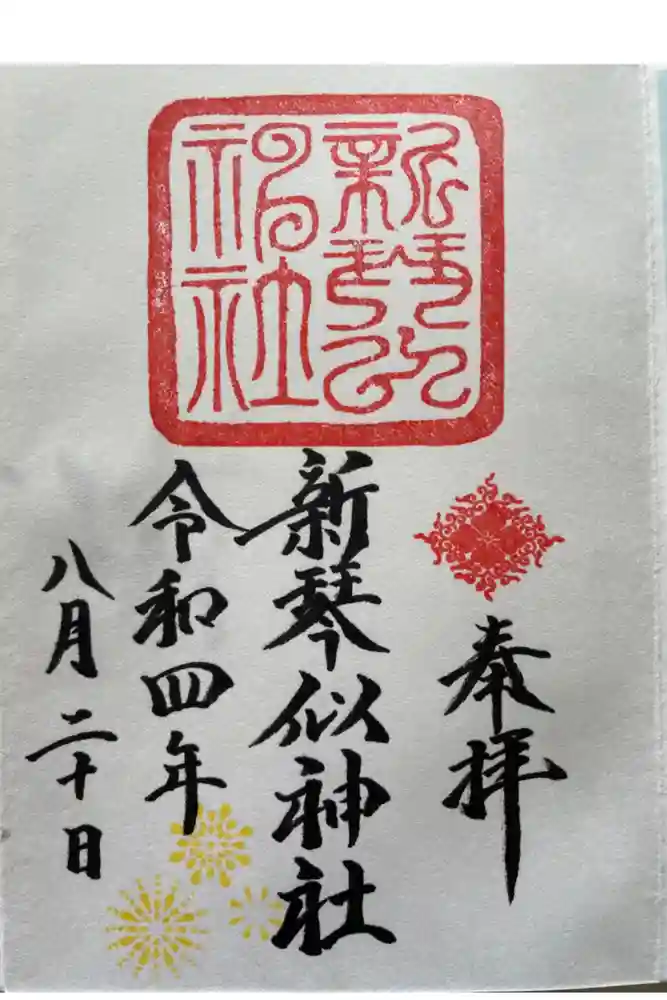 新琴似
神社
奉拝
新琴似神社
令和四年
八月二十日